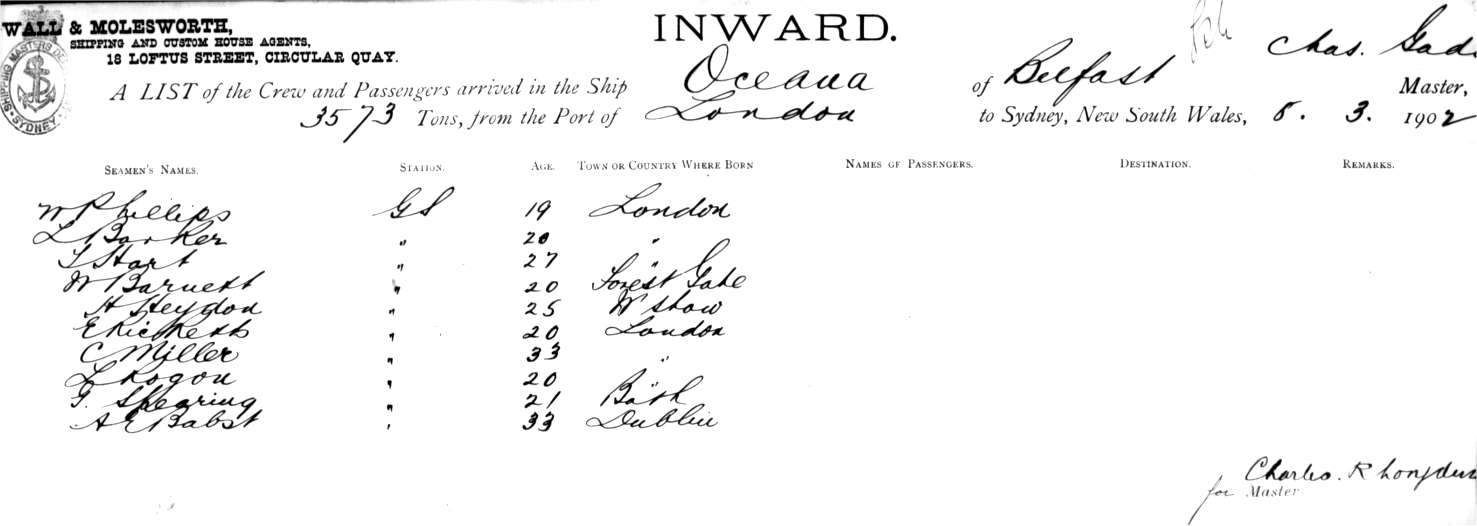 WALL & MOLESWORTH,
SHIPPING AND CUSTOM HOUSE AGENTS,
18 LOFTUS STREET, CIRCULAR QUAY.
INWARD.
A LIST of the Crew and Passengers arrived in the Ship Oceana of Belfast Chas. Gad Master,
3573 Tons, from the Port of London to Sydney, New South Wales, 8. 3. 1902
SEAMEN'S NAMES. STATION. AGE. TOWN OR COUNTRY WHERE BORN NAMES OF PASSENGERS. DESTINATION. REMARKS.
W Phillips GS 19 London
L Barker " 20 "
T Hart " 27 "
W Barnett " 20 Forest Gate
H Heydon " 25 W'stow
E Ricketts " 20 London
C Miller " 33 "
L Rogon " 20 "
G. Shearing " 21 Bath
A E Babst " 33 Dublin
Charles. R Longden
for Master